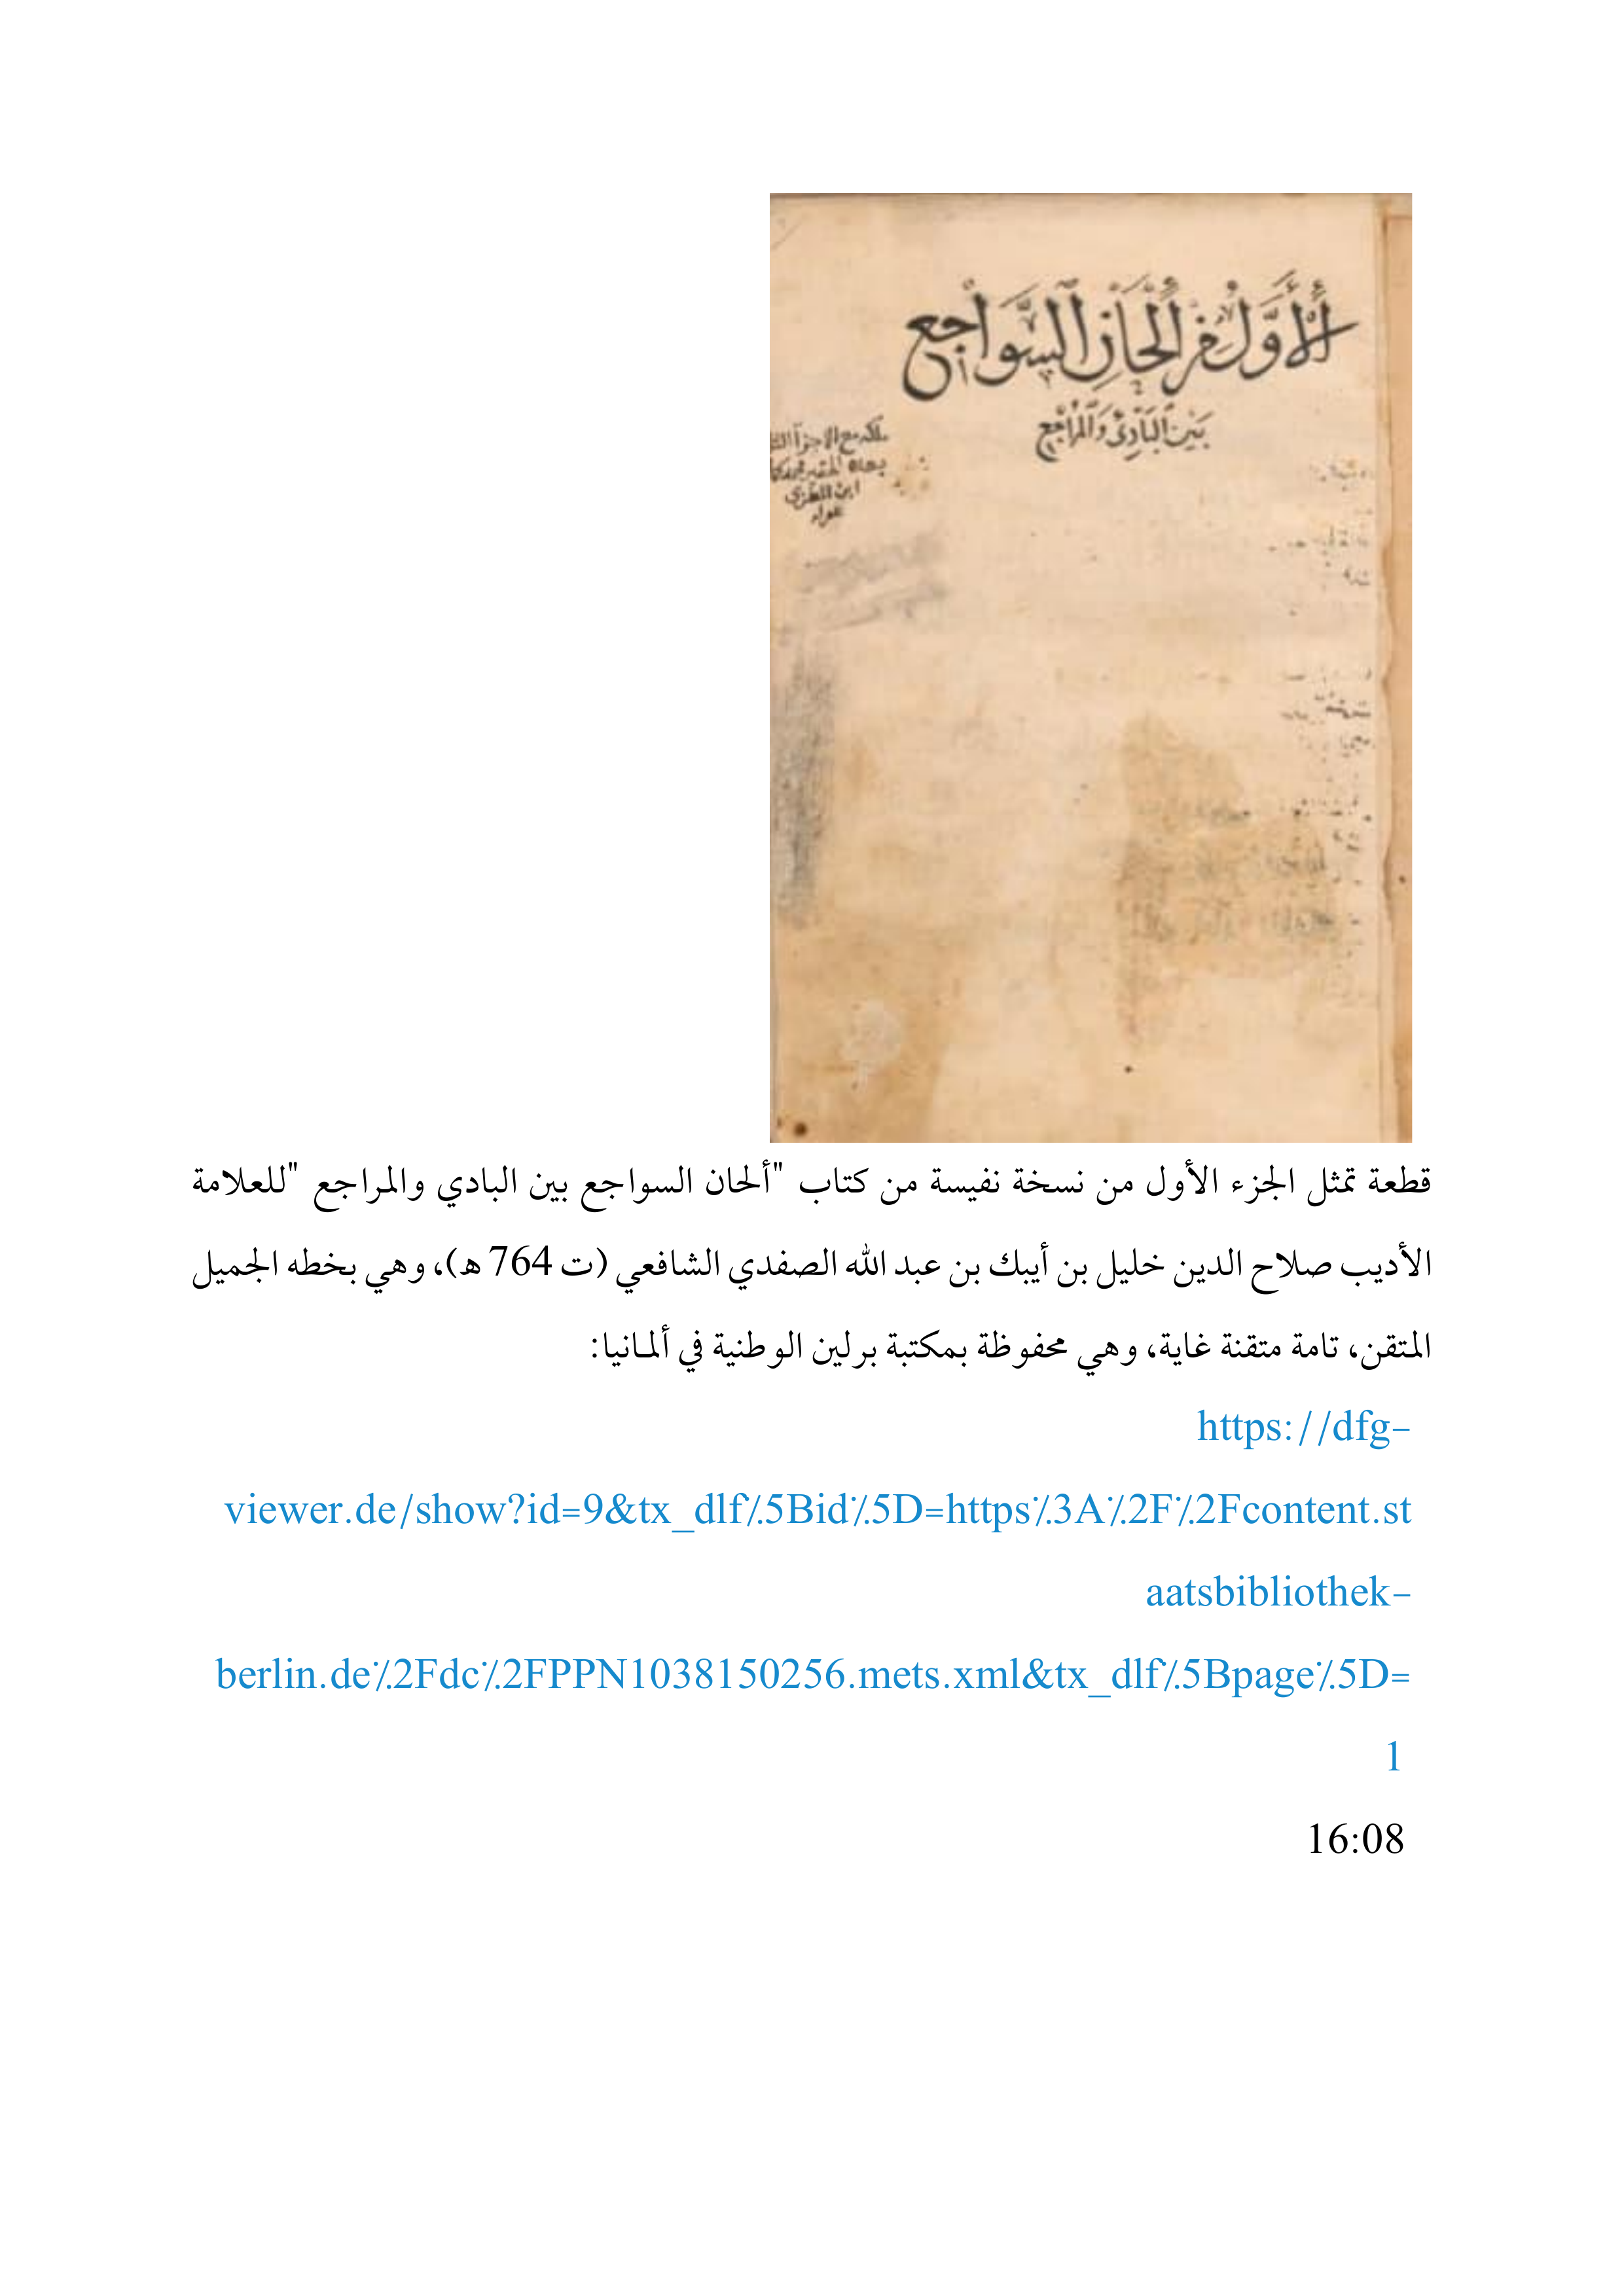 الأَوَّل من أَلْحَانِ السَّوَاجِع
بَيْنَ البَادِئ وَالمُرَاجِع
ملكه مع الاجزاء
ابن الغزي
قطعة تمثل الجزء الأول من نسخة نفيسة من كتاب "ألحان السواجع بين البادي والمراجع "للعلامة
الأديب صلاح الدين خليل بن أيبك بن عبد الله الصفدي الشافعي (ت 764 هـ)، وهي بخطه الجميل
المتقن، تامة متقنة غاية، وهي محفوظة بمكتبة برلين الوطنية في ألمانيا:
https://dfg-
viewer.de/show?id=9&tx_dlf٪5Bid٪5D=https٪3A٪2F٪2Fcontent.st
aatsbibliothek-
berlin.de٪2Fdc٪2FPPN1038150256.mets.xml&tx_dlf٪5Bpage٪5D=
1
16:08